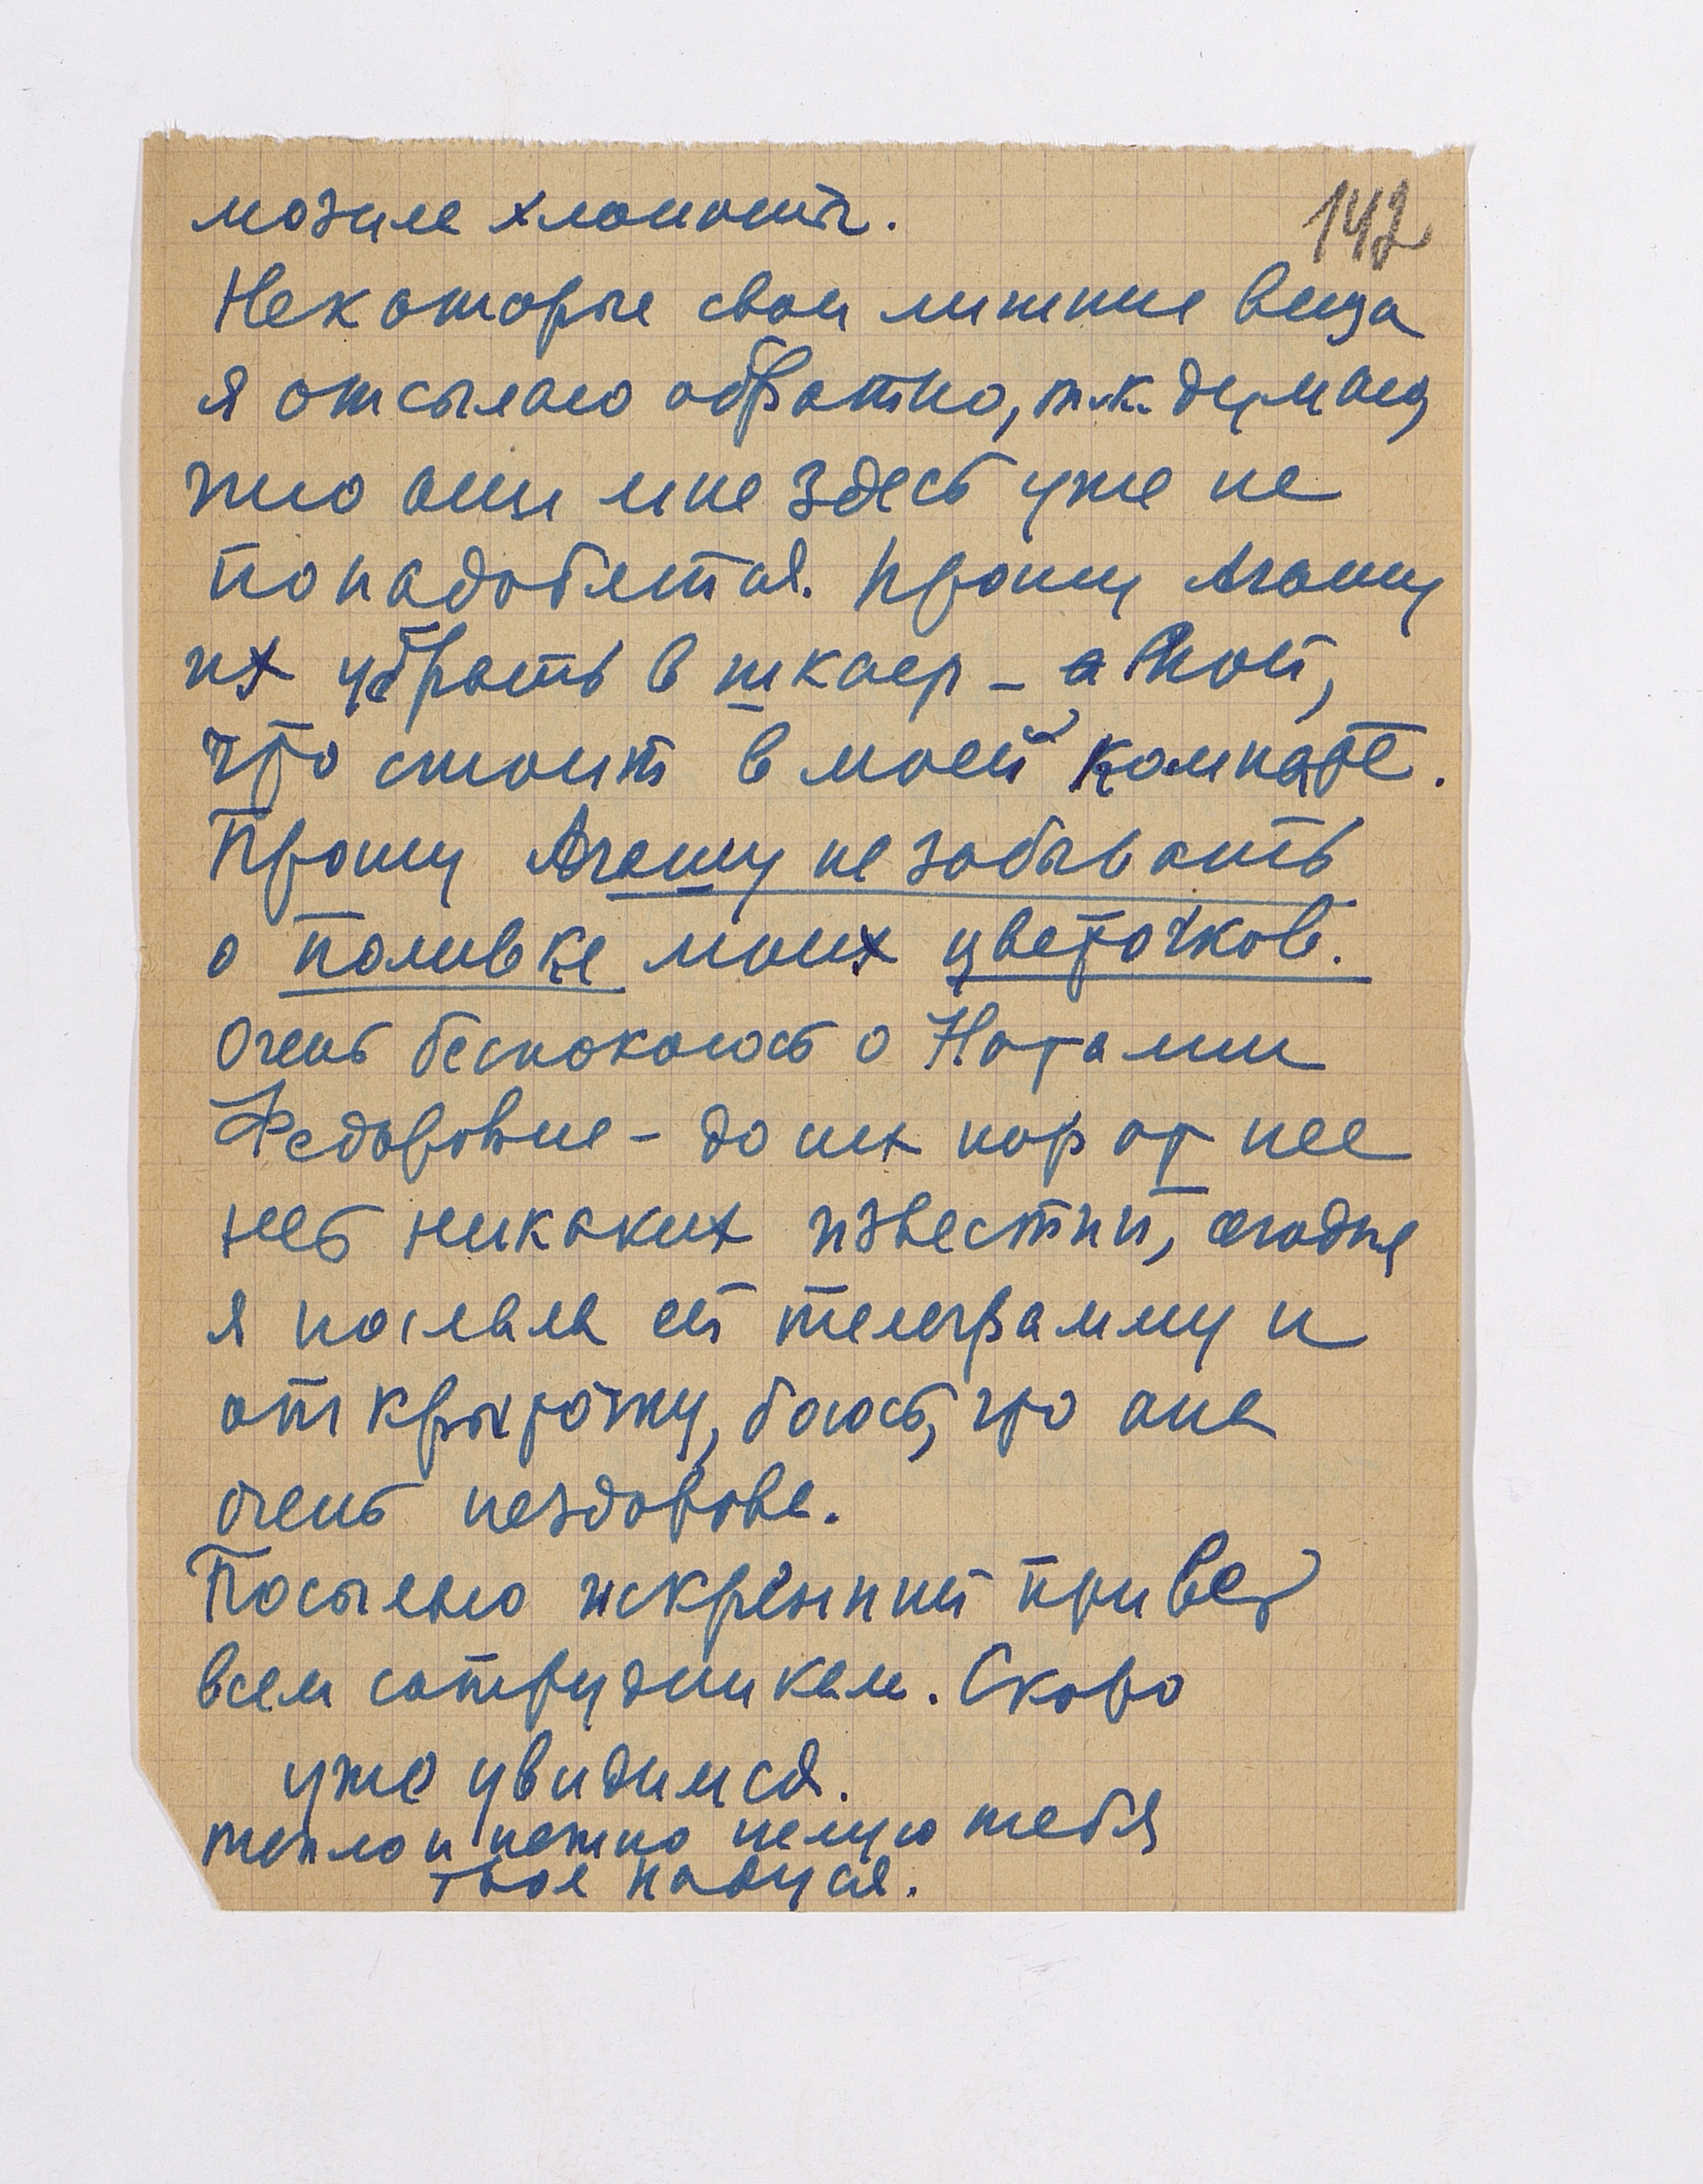 142
мозиле хлопоты.
Некоторые свои лишние вещи
я отсылаю обратно, т.к. думаю,
что они мне здесь уже не
понадобятся. Прошу Агашу
их убрать в шкаф – мой,
что стоит в моей комнате.
Прошу Агашу не забывать
о поливке моих цветочков.
Очень беспокоюсь о Наталии
Федоровне – до сих пор от нее
нет никаких известий, сегодня
я послала ей телеграмму и
открыточку, боюсь, что она
очень нездорова.
Посылаю искренний привет
всем сотрудникам. Скоро
уже увидимся.
тепло и нежно целую тебя
твоя